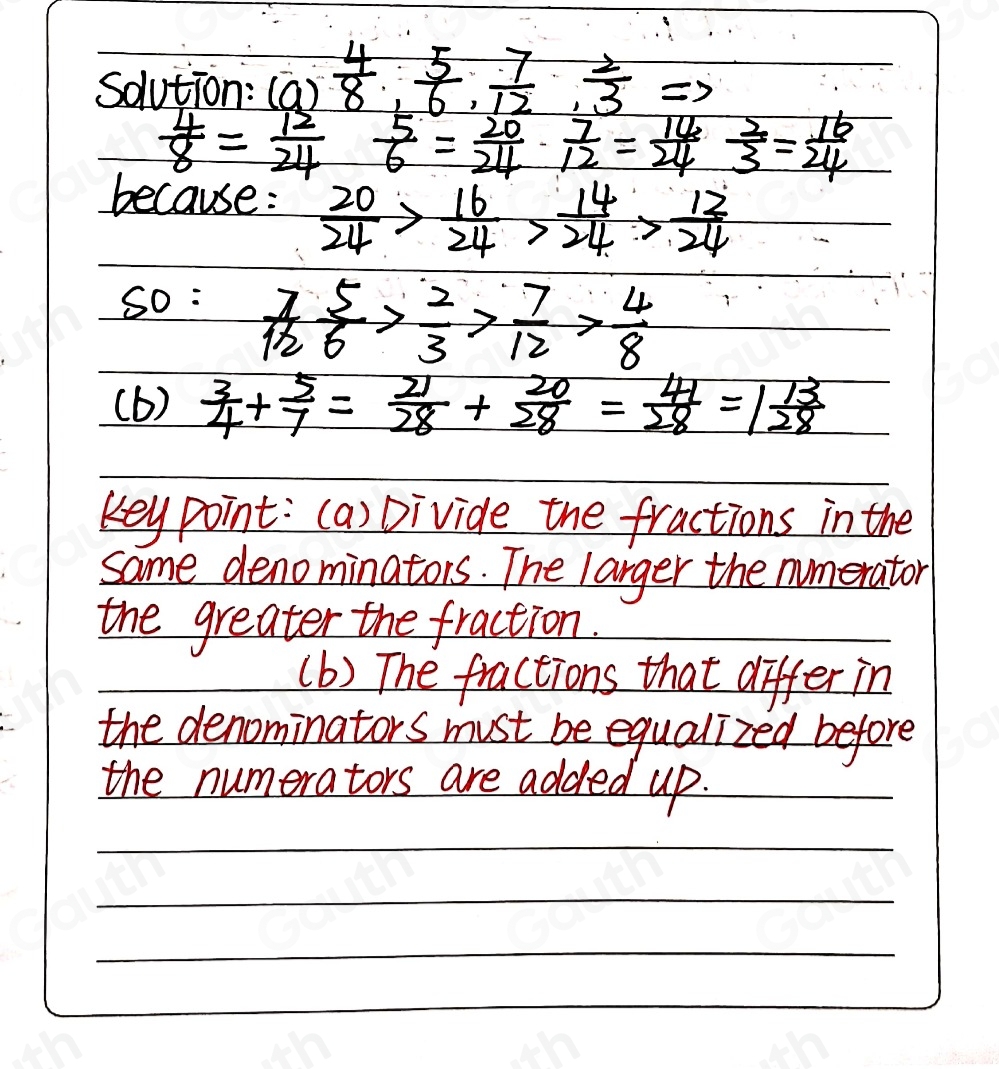 Solution: (a) 4/8, 5/6, 7/12, 2/3 =>
4/8 = 12/24 5/6 = 20/24 7/12 = 14/24 2/3 = 16/24
because: 20/24 > 16/24 > 14/24 > 12/24
so: 5/6 > 2/3 > 7/12 > 4/8
(b) 3/4 + 5/7 = 21/28 + 20/28 = 41/28 = 1 13/28
key point: (a) Divide the fractions in the
same denominators. The larger the numerator
the greater the fraction.
(b) The fractions that differ in
the denominators must be equalized before
the numerators are added up.